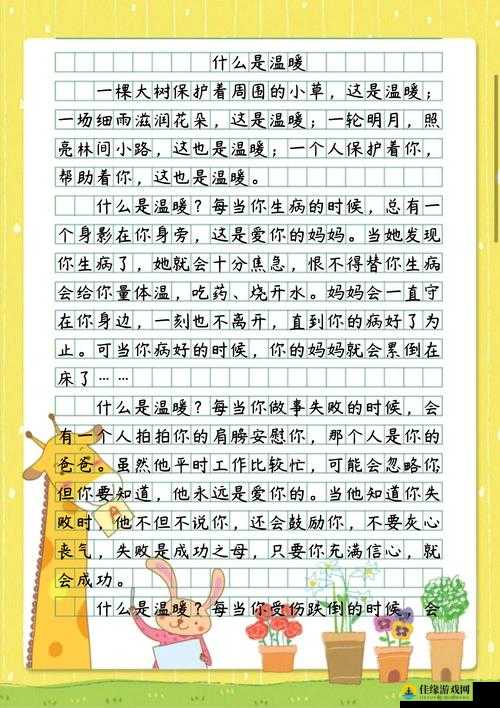 什么是温暖
一棵大树保护着周围的小草，这是温暖；
一场细雨滋润花朵，这是温暖；一轮明月，照
亮林间小路，这也是温暖；一个人保护着你，
帮助着你，这也是温暖。
什么是温暖？每当你生病的时候，总有一
个身影在你身旁，这是爱你的妈妈。当她发现
你生病了，她就会十分焦急，恨不得替你生病
会给你量体温，吃药、烧开水。妈妈会一直守
在你身边，一刻也不离开，直到你的病好了为
止。可当你病好的时候，你的妈妈就会累倒在
床了……
什么是温暖？每当你做事失败的时候，会
有一个人拍拍你的肩膀安慰你，那个人是你的
爸爸。虽然他平时工作比较忙，可能会忽略你
但你要知道，他永远是爱你的。当他知道你失
败时，他不但不说你，还会鼓励你，不要灰心
丧气，失败是成功之母，只要你充满信心，就
会成功。
什么是温暖？每当你受伤跌倒的时候，会
佳缘游戏网